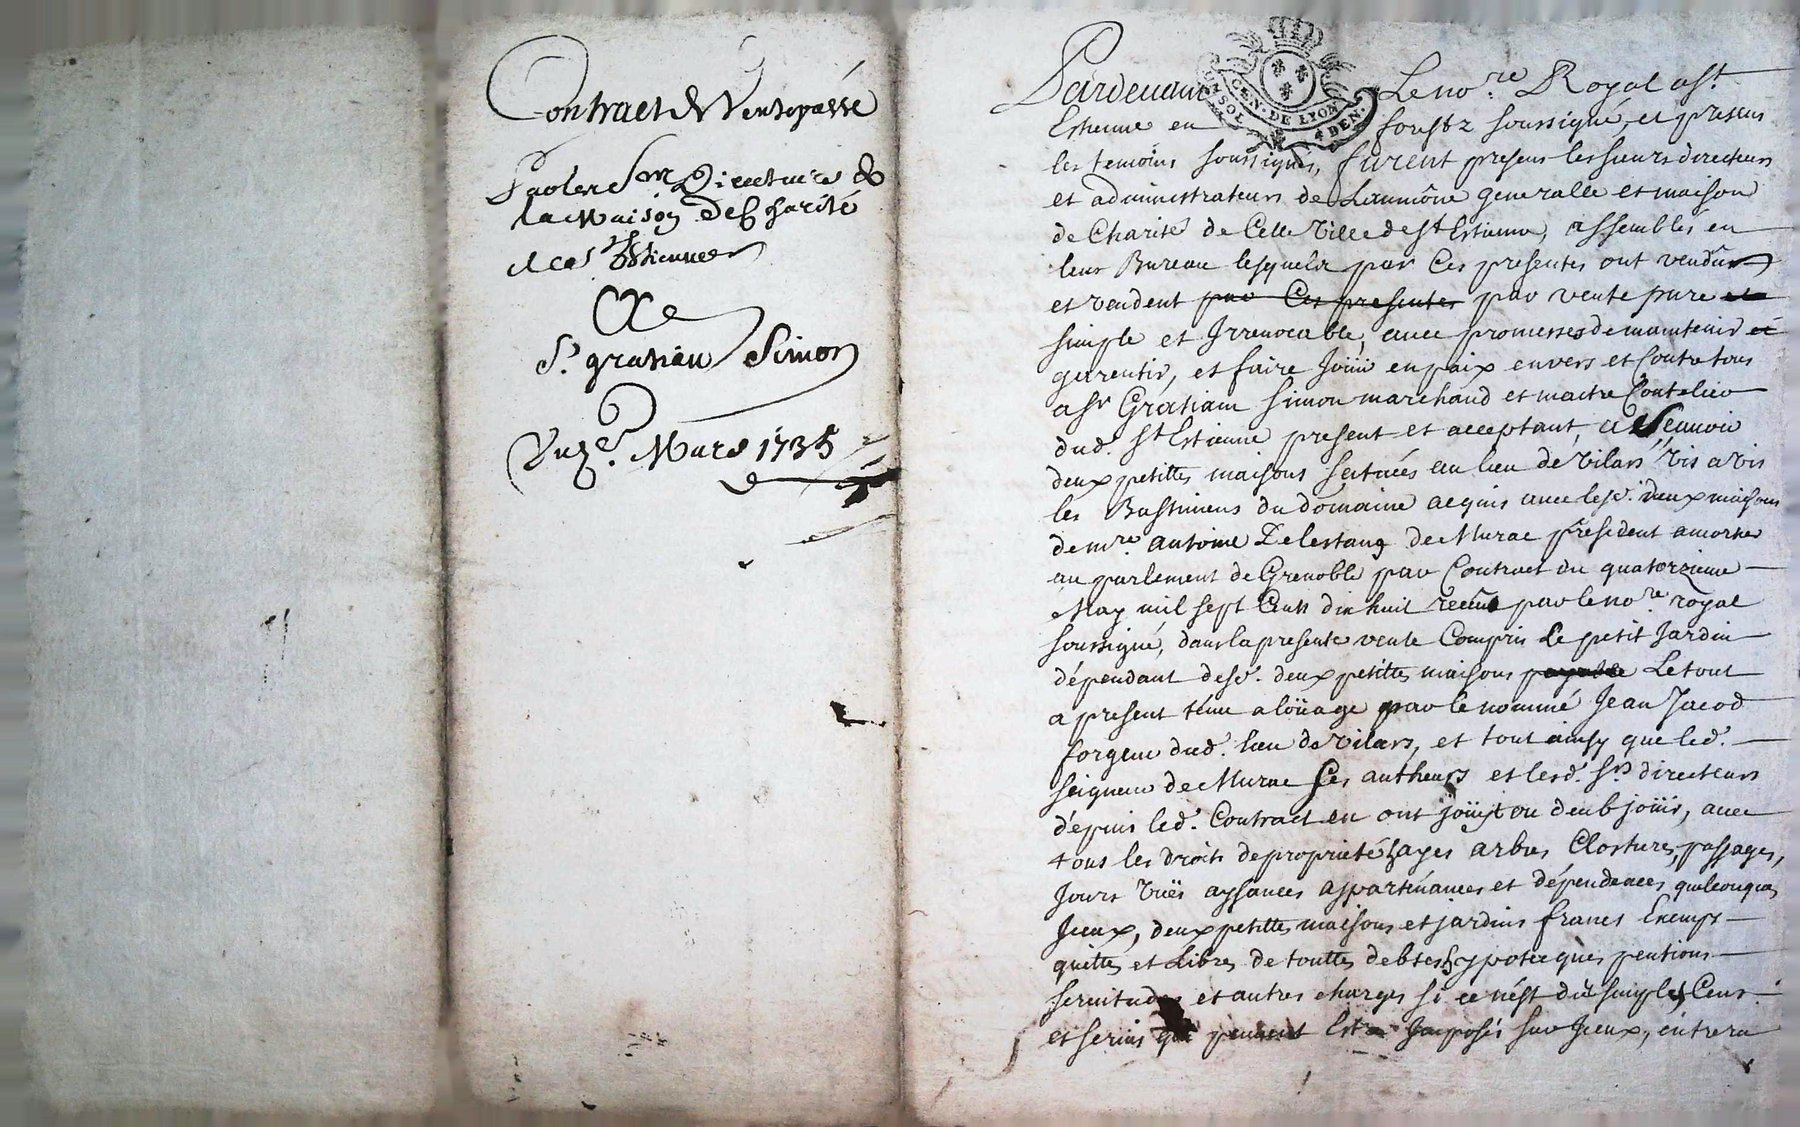 Contract de Vente passé
Par les Srs Directeurs de
la Maison de Charité
de cas St Estienne
A
Sr. gratian Simon
Du 3e. Mars 1735
Pardevant Le nore. Royal a St.
Estienne en forestz soussigné, et presens
les temoins soussignés, furent presens les sieurs directeurs
et administrateurs de Laumône generalle et maison
de Charité de Cette Ville de St Estienne, assemblés en
leur Bureau lesquels par Ces presentes ont vendu
et vendent par Ces presentes par vente pure et
simple et Irrevocable, avec promesses de maintenir et
garentir, et faire Joüir en paix envers et Contre tous
a Sr Gratian Simon marchand et maitre Coutelier
dud. St Estienne present et acceptant, a Scavoir
deux petittes maisons scituées au lieu de Vilars vis a vis
les Bastimens du domaine acquis avec lesd. deux maisons
de mre. antoine De lestang de Murac président a mortier
au parlement de Grenoble par Contract du quatorzieme
May mil sept Cens dix huit receu par le nore. royal
soussigné, dans la presente vente Compris Le petit Jardin
dépendant desd. deux petittes maisons Le tout
a present ténu a loüage par le nommé Jean Jacod
forgeur dud. lieu de Vilars, et tout ainsy que led.
seigneur de Murac ses autheurs et lesd. Srs directeurs
d'epuis led. Contract en ont joüy ou deub joüir, avec
tous les droits de proprieté hayes arbres Clostures, passages,
Jours vües aysances appartenances et dépendences quelconques
Iceux, deux petittes maisons et jardins francs Exemps
quittes et Libres de touttes debtes hypotecques pentions
servitudes et autres charges si ce nést du simple Cens
et servis qui peuvent Estre Imposés sur Iceux, entrera